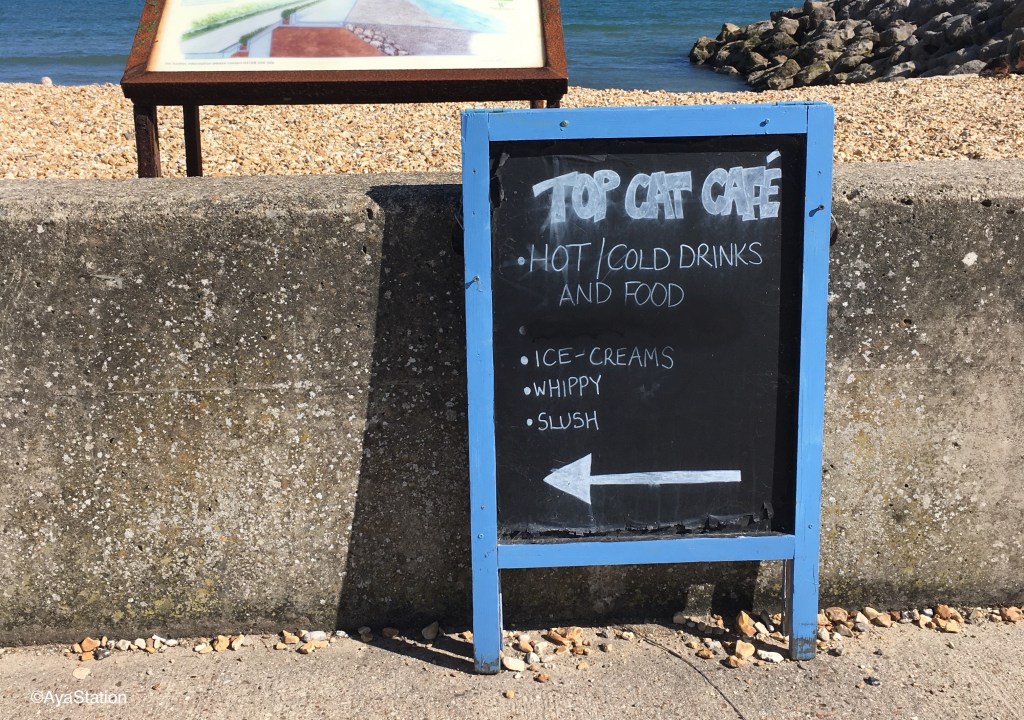 TOP CAT CAFÉ
• HOT / COLD DRINKS
AND FOOD
• ICE-CREAMS
• WHIPPY
• SLUSH
©AyaStation